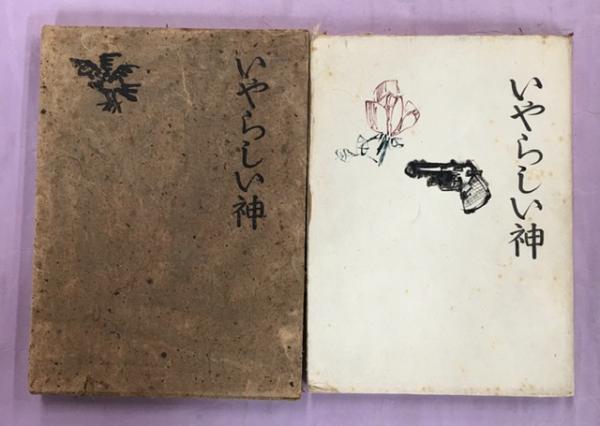 いやらしい神
いやらしい神